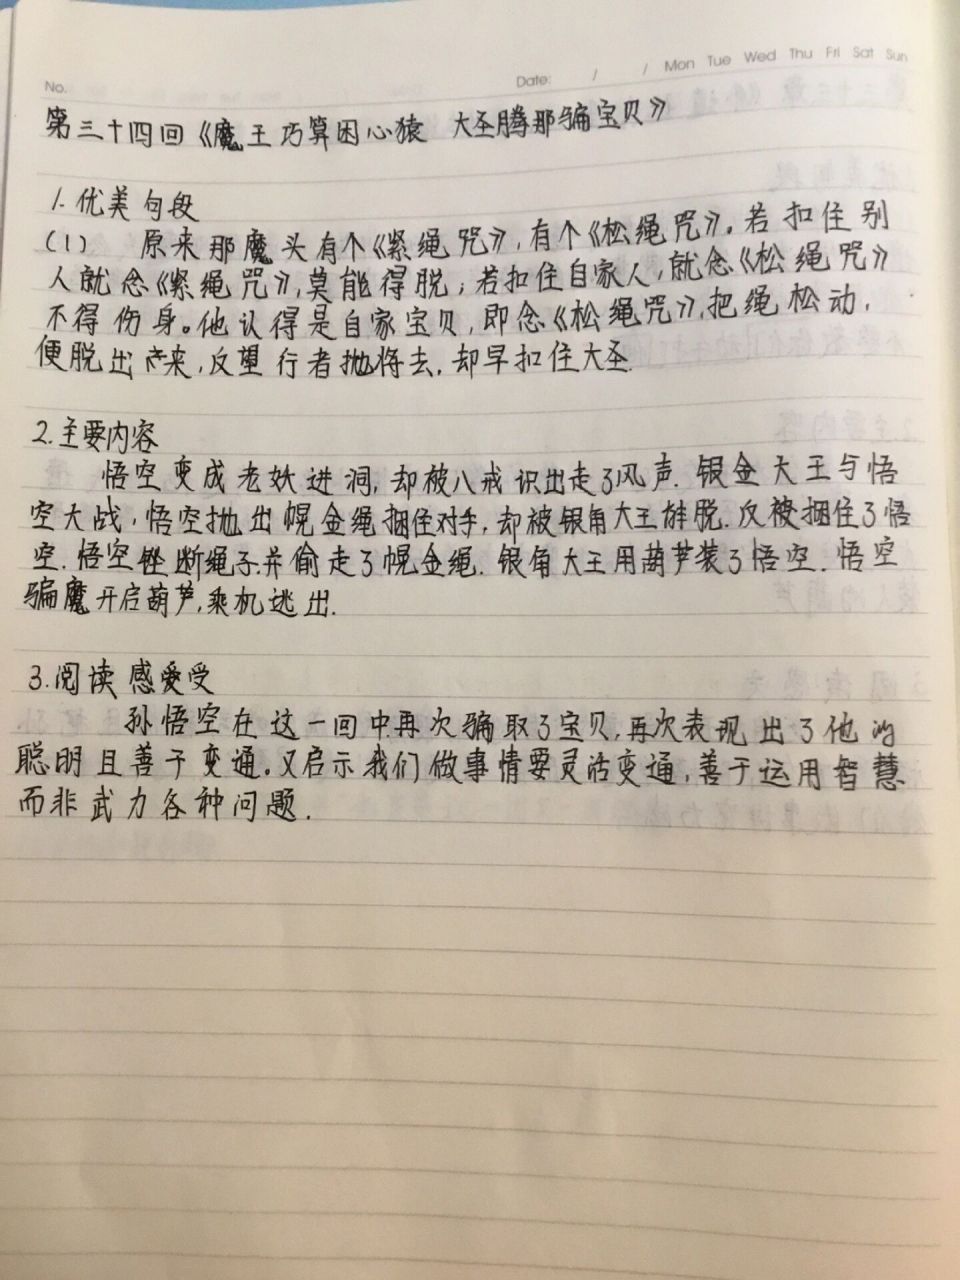 No.
Date: / / Mon Tue Wed Thu Fri Sat Sun
第三十四回《魔王巧算困心猿 大圣腾那骗宝贝》
1. 优美句段
(1) 原来那魔头有个《紧绳咒》,有个《松绳咒》。若扣住别
人就念《紧绳咒》,莫能得脱；若扣住自家人,就念《松绳咒》
不得伤身。他认得是自家宝贝,即念《松绳咒》,把绳松动,
便脱出来,反望行者抛将去,却早扣住大圣.
2.主要内容
悟空变成老妖进洞,却被八戒识出走了风声.银金大王与悟
空大战,悟空抛出幌金绳捆住对手,却被银角大王解脱.反被捆住了悟
空.悟空锉断绳子并偷走了幌金绳.银角大王用葫芦装了悟空.悟空
骗魔开启葫芦,乘机逃出.
3.阅读感爱受
孙悟空在这一回中再次骗取了宝贝,再次表现出了他的
聪明且善于变通。又启示我们做事情要灵活变通,善于运用智慧
而非武力各种问题.